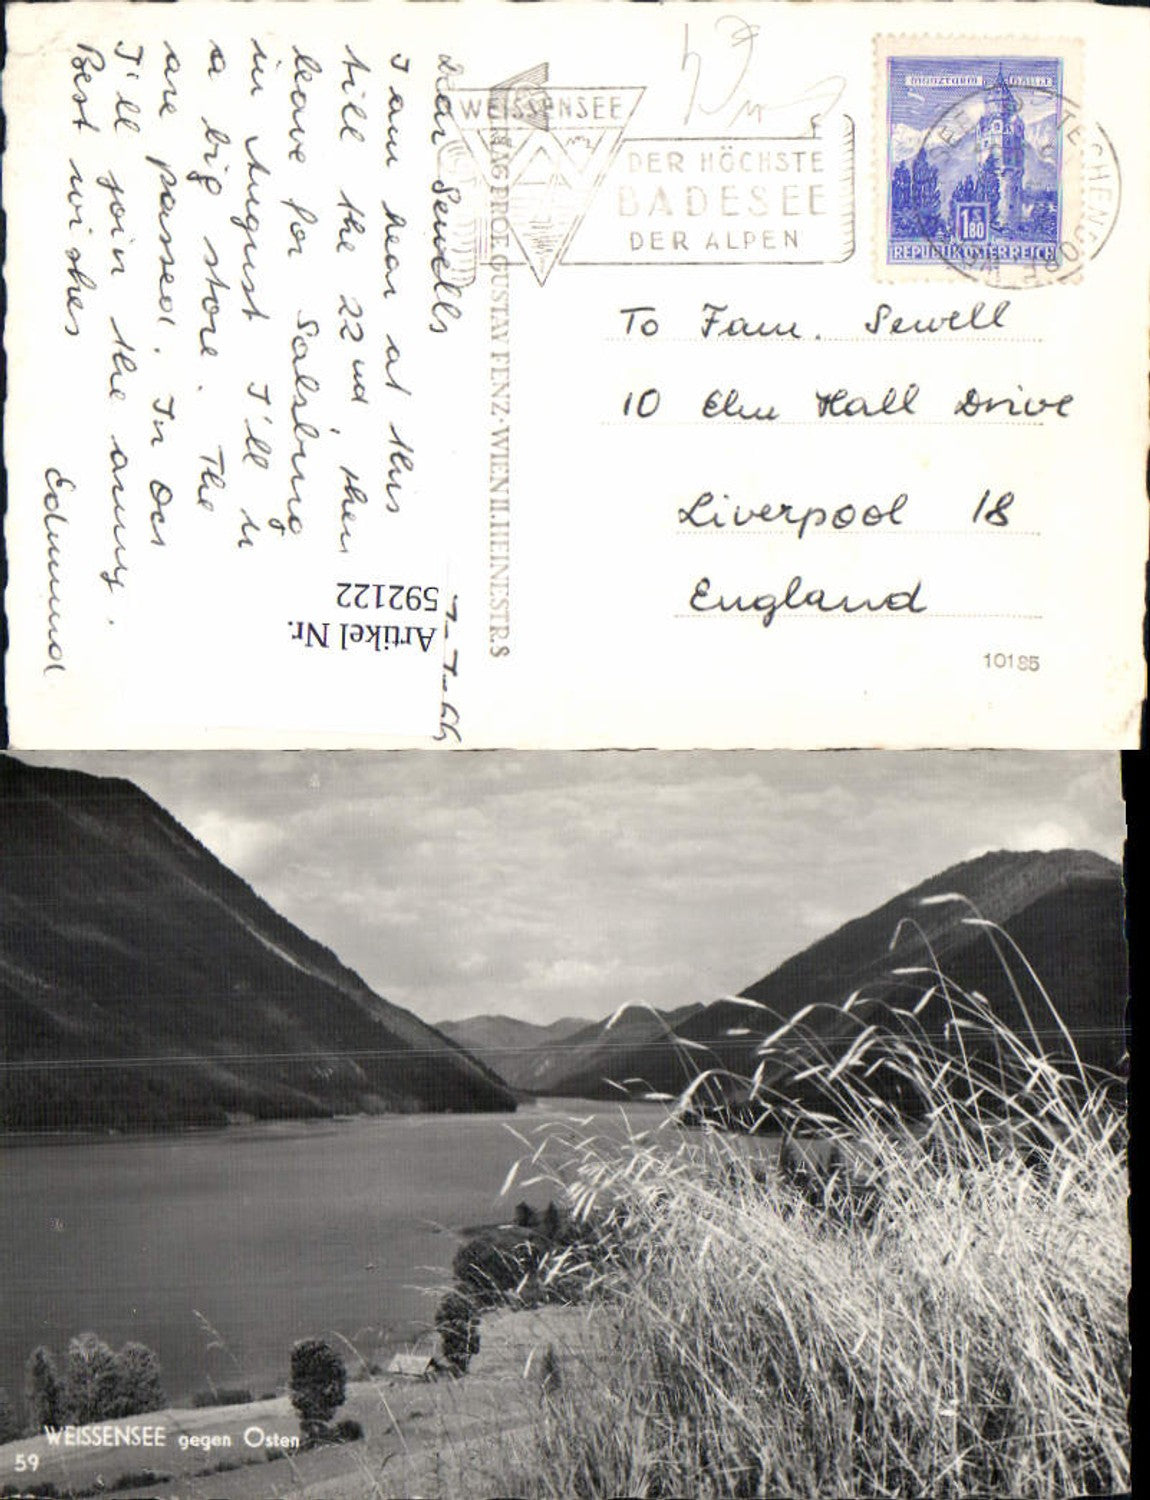 Dear Sewells
I am hear at this
till the 22nd, then
leave for Salsburg
in August I'll in
a big store. The
are passed. In Oct
I'll join the army.
Best wishes
Edmund
7-7-66
Artikel Nr.
592122
VERLAG PROF. GUSTAV FENZ·WIEN II. HEINESTR. 8
WEISSENSEE
DER HÖCHSTE
BADESEE
DER ALPEN
MÜNZTURM HALL I.T.
1 S 80
REPUBLIK ÖSTERREICH
To Fam. Sewell
10 Elm Hall Drive
Liverpool 18
England
10185
WEISSENSEE gegen Osten
59